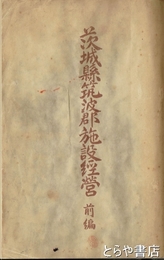 茨城縣筑波郡施設經營 前編
古書 古本
とらや書店